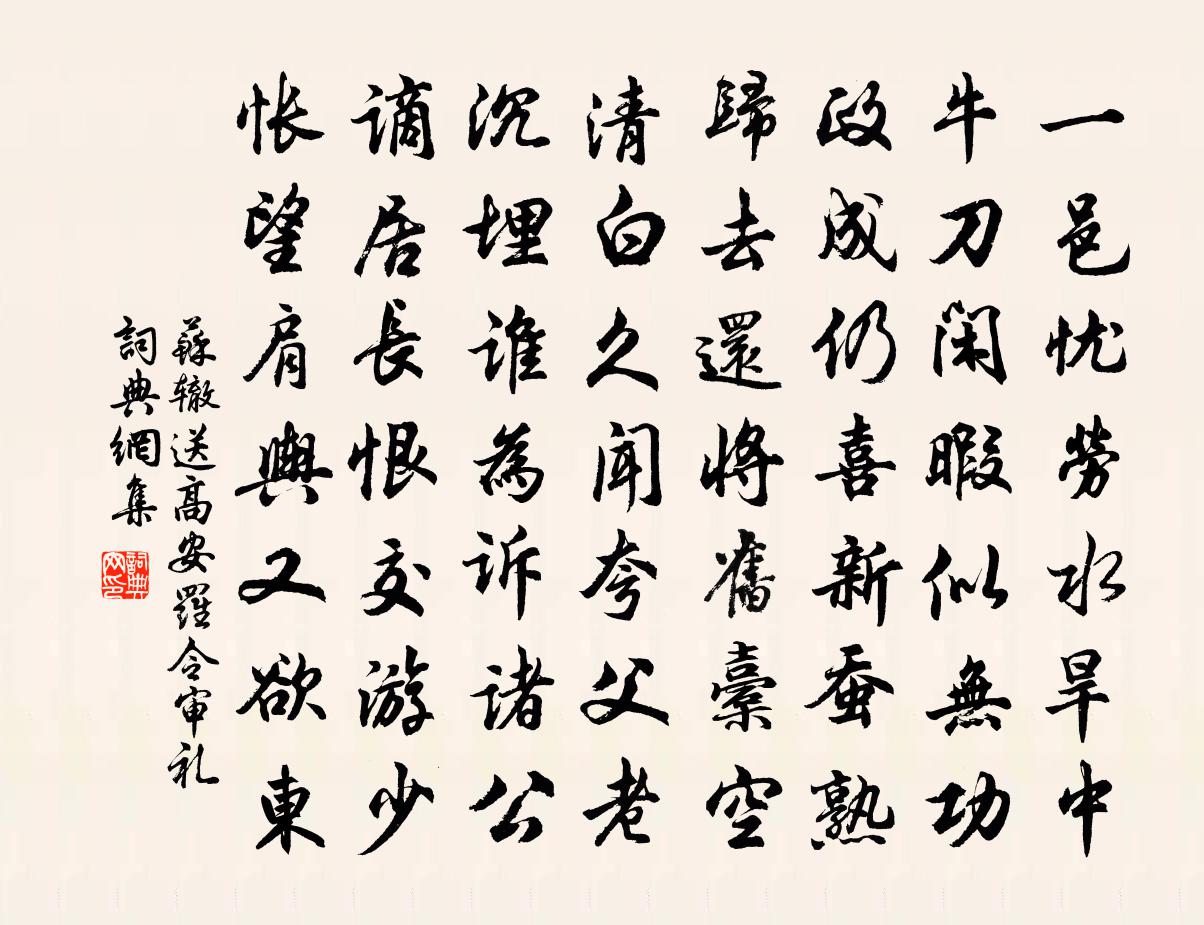 一邑忧勞水旱中
牛刀闲暇似無功
政成仍喜新蚕熟
歸去還將舊橐空
清白久聞夸父老
沉埋谁為诉诸公
谪居長恨交游少
怅望肩輿又欲東
蘇辙送高安羅令审礼
詞典網集
詞典网印